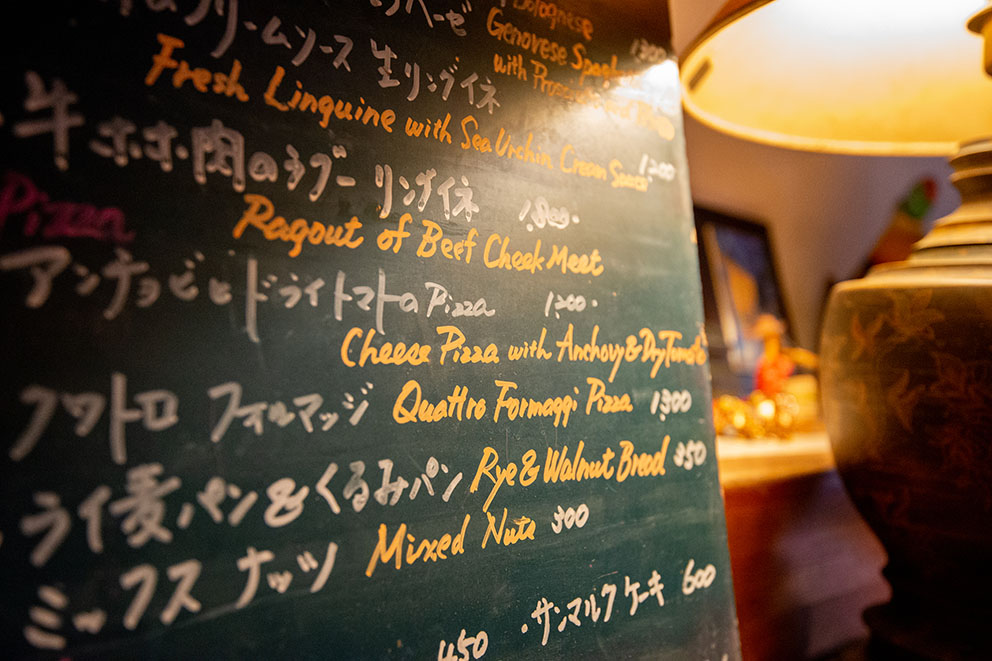 Bolognese
Genovese Spagh
1300
with
クリームソース 生リングイネ
Fresh Linguine with Sea Urchin Cream Sauce 1200
牛ホホ肉のラグー リングイネ
Ragout of Beef Cheek Meet
Pizza
アンチョビとドライトマトのPizza 1,200.
Cheese Pizza with Anchovy & Dry Tomato
クワトロ フォルマッジ Quattro Formaggi Pizza 1,300
ライ麦パン&くるみパン Rye & Walnut Bread 350
ミックスナッツ Mixed Nuts 300
450 ・サンマルクケーキ 600